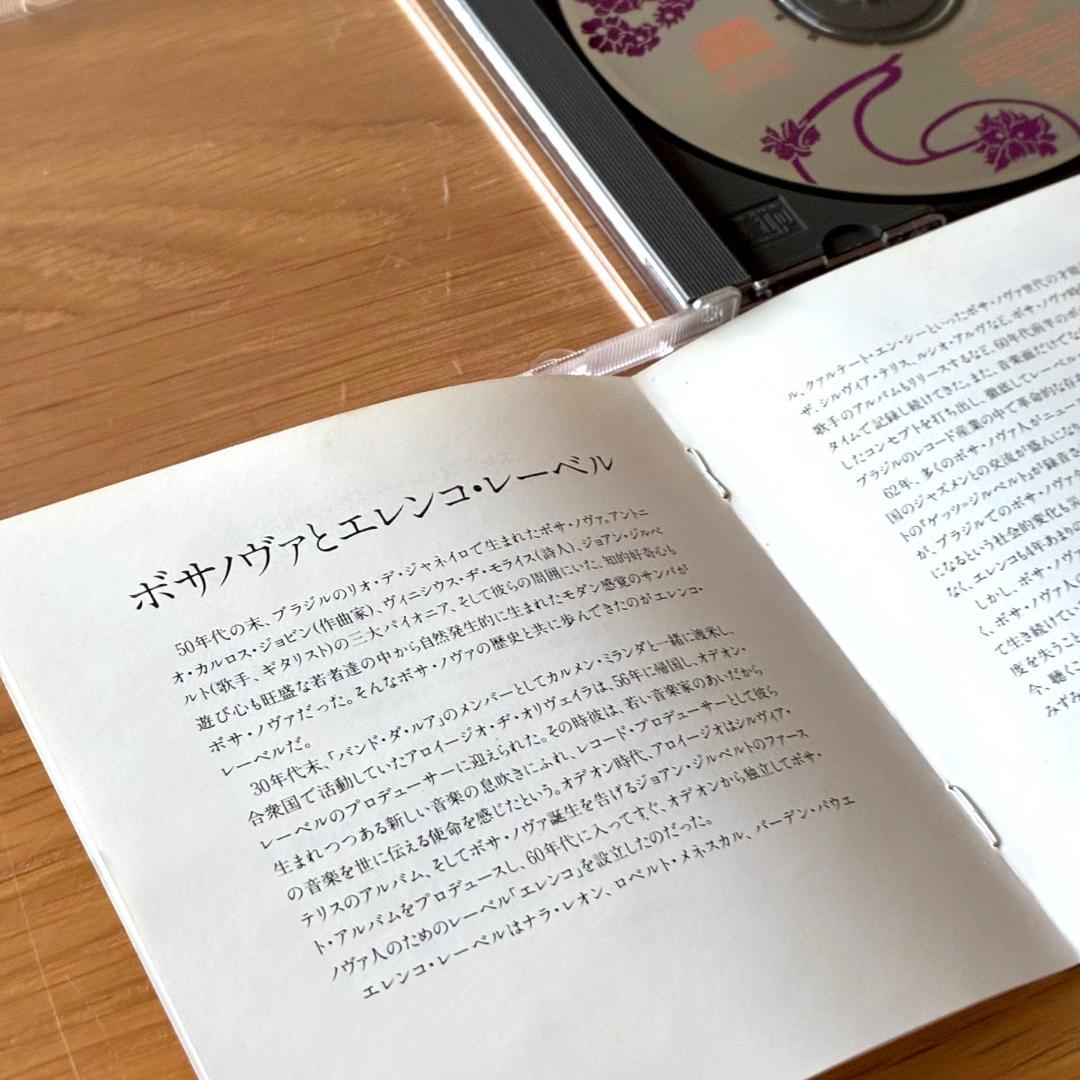 ボサノヴァとエレンコ・レーベル
50年代の末、ブラジルのリオ・デ・ジャネイロで生まれたボサ・ノヴァ。アントニ
オ・カルロス・ジョビン(作曲家)、ヴィニシウス・ヂ・モライス(詩人)、ジョアン・ジルベ
ルト(歌手、ギタリスト)の三大パイオニア、そして彼らの周囲にいた、知的好奇心も
遊び心も旺盛な若者達の中から自然発生的に生まれたモダン感覚のサンバが
ボサ・ノヴァだった。そんなボサ・ノヴァの歴史と共に歩んできたのがエレンコ・
レーベルだ。
30年代末、「バンド・ダ・ルア」のメンバーとしてカルメン・ミランダと一緒に渡米し、
合衆国で活動していたアロイージオ・ヂ・オリヴェイラは、56年に帰国し、オデオン・
レーベルのプロデューサーに迎えられた。その時彼は、若い音楽家のあいだから
生まれつつある新しい音楽の息吹きにふれ、レコード・プロデューサーとして彼ら
の音楽を世に伝える使命を感じたという。オデオン時代、アロイージオはシルヴィア・
テリスのアルバム、そしてボサ・ノヴァ誕生を告げるジョアン・ジルベルトのファース
ト・アルバムをプロデュースし、60年代に入ってすぐ、オデオンから独立してボサ・
ノヴァ人のためのレーベル「エレンコ」を設立したのだった。
エレンコ・レーベルはナラ・レオン、ロベルト・メネスカル、バーデン・パウエ
ル、クァルテート・エン・シーといったボサ・ノヴァ世代の才能
ザ、シルヴィア・テリス、ルシオ・アルヴなど、ボサ・ノヴァ時
歌手のアルバムもリリースするなど、60年代前半のボ
タイムで記録し続けてきた。また、音楽面だけでな
したコンセプトを打ち出し、徹底してレーベル
ブラジルのレコード産業の中で革命的な存
62年、多くのボサ・ノヴァ人がニュー
国のジャズメンとの交流が盛んになり
トの『ゲッツ=ジルベルト』が録音さ
が、ブラジルでのボサ・ノヴァ
になるという社会的変化も
なく、エレンコも4年あまりの
しかし、ボサ・ノヴ
く、ボサ・ノヴァ人
て生き続けてい
度を失うこと
今、聴く
みずみ